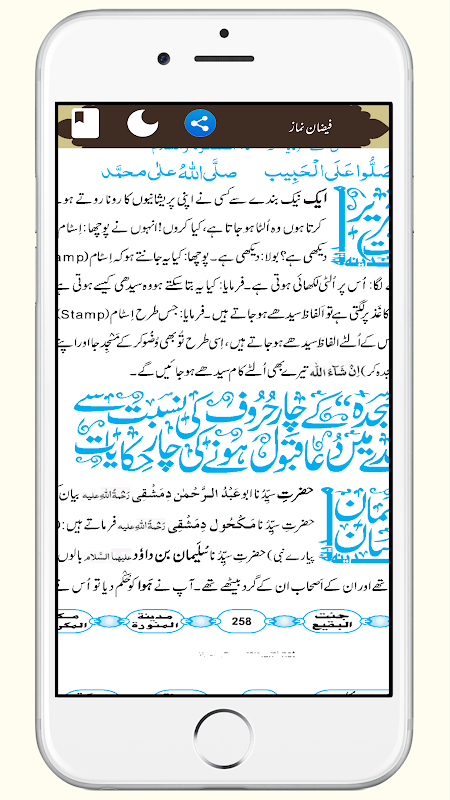 فیضان نماز
صَلُّوا عَلَی الْحَبِیب صلَّی اللهُ علٰی محمَّد
ایک نیک بندے سے کسی نے اپنی پریشانیوں کا رونا روتے ہو
کرتا ہوں وہ اُلٹا ہو جاتا ہے، کیا کروں! انہوں نے پوچھا: اِسٹام
دیکھی ہے؟ بولا: دیکھی ہے۔ پوچھا: کیا یہ جانتے ہو کہ اِسٹام (amp
لگا: اُس پر اُلٹی لکھائی ہوتی ہے۔ فرمایا: کیا یہ بتا سکتے ہو وہ سیدھی کیسے ہوتی ہے
کاغذ پر لگتی ہے تو الفاظ سیدھے ہو جاتے ہیں۔ فرمایا: جس طرح اِسٹام (Stamp)
کے اُلٹے الفاظ سیدھے ہو جاتے ہیں، اِسی طرح تُو بھی وُضو کر کے مسجد جا اور اپنے
سجدہ کر) اِنْ شَآءَ اللّٰه تیرے بھی اُلٹے کام سیدھے ہو جائیں گے۔
سجدہ“ کے چار حُروف کی نسبت سے
میں دُعا قبول ہونے کی چار حکایات
حضرتِ سیِّدُنا ابو عَبْدُ الرَّحْمٰن دِمَشْقی رَحْمَةُ اللهِ علیه بیان ک
حضرتِ سیِّدُنا مَکْحُول دِمَشْقی رَحْمَةُ اللهِ علیه فرماتے ہیں: (
پیارے نبی) حضرتِ سیِّدُنا سُلَیمان بن داوٗد علیهما السَّلام بالوں
تھے اور ان کے اَصحاب ان کے گرد بیٹھے تھے۔ آپ نے ہوا کو حُکْم دیا تو اُس نے
جنت البقیع 258 مدینة المنورة